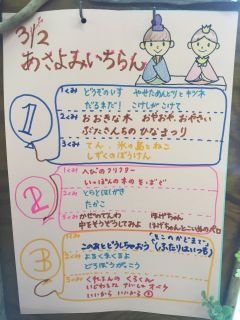 3/2
あさよみいちらん
1
1くみ どうぞのいす やせためんどりとキツネ
だるまだ! こけしがこけて
2くみ おおきな木 おやおや、おやさい
ぶたさんちの ひなまつり
3くみ てん、氷の島とねこ
しずくのぼうけん
2
1くみ へびのクリクター
いっぽんの木の
2くみ とらとほしがき
たかこ
かぜのでんわ ほげちゃん
中をそうぞうしてみよ
3
このあとどうしちゃおう
(ふたりはいつも)
2くみ よるくまくるよ
どろぼうがっこう
3くみ くれよんのくろくん
いいから いいから